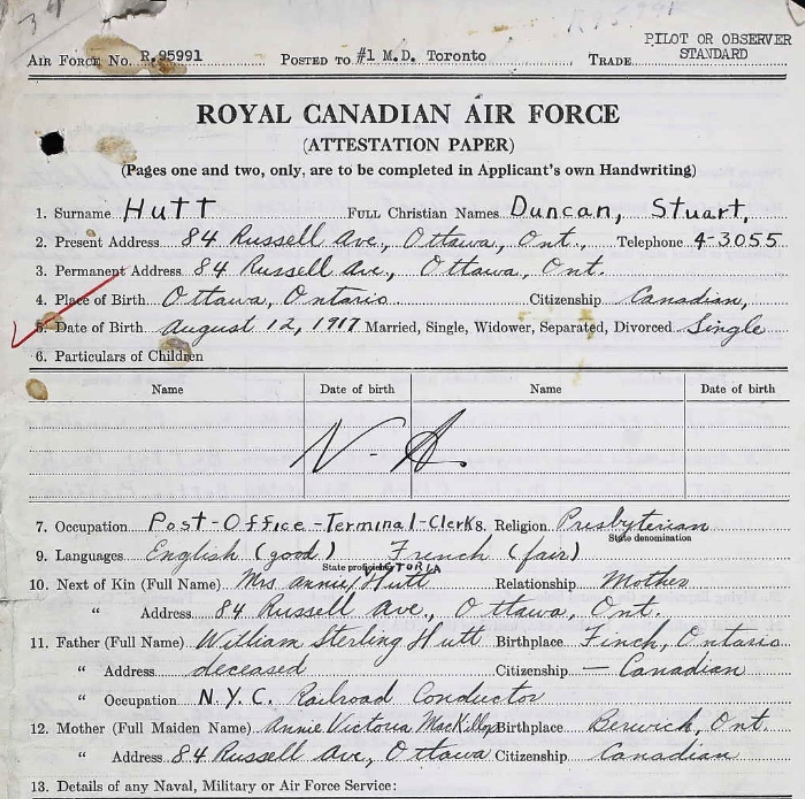 34
PILOT OR OBSERVER
AIR FORCE No. R.95991 POSTED TO #1 M.D. Toronto TRADE STANDARD
ROYAL CANADIAN AIR FORCE
(ATTESTATION PAPER)
(Pages one and two, only, are to be completed in Applicant's own Handwriting)
1. Surname Hutt FULL Christian Names Duncan, Stuart,
2. Present Address 84 Russell Ave., Ottawa, Ont., Telephone 4-3055
3. Permanent Address 84 Russell Ave., Ottawa, Ont.
4. Place of Birth Ottawa, Ontario Citizenship Canadian,
5. Date of Birth August 12, 1917 Married, Single, Widower, Separated, Divorced Single
6. Particulars of Children
Name Date of birth Name Date of birth
N-A
7. Occupation Post-Office-Terminal-Clerk 8. Religion Presbyterian
State denomination
9. Languages English (good) French (fair)
State proficiency VICTORIA
10. Next of Kin (Full Name) Mrs Annie / Hutt Relationship Mother
" Address 84 Russell Ave., Ottawa, Ont.
11. Father (Full Name) William Sterling Hutt Birthplace Finch, Ontario
" Address deceased Citizenship — Canadian
" Occupation N.Y.C. Railroad Conductor
12. Mother (Full Maiden Name) Annie Victoria MacKillop Birthplace Berwick, Ont.
" Address 84 Russell Ave, Ottawa Citizenship Canadian
13. Details of any Naval, Military or Air Force Service: